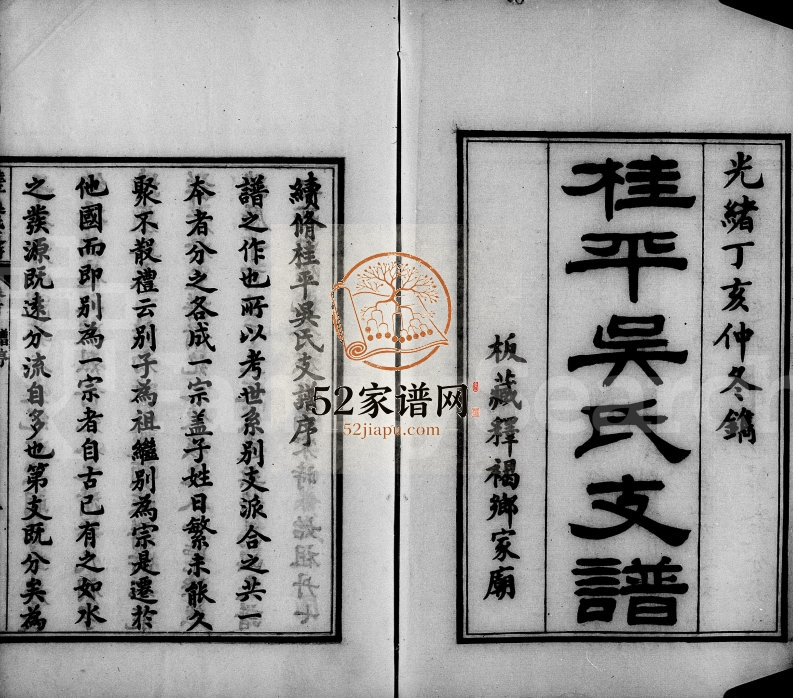 光緒丁亥仲冬鐫
桂平吳氏支譜
板藏釋褐鄉家廟
續脩桂平吳氏支譜序
譜之作也所以考世系別支派合之共一
本者分之各成一宗盖子姓日繁未能久
聚不散禮云別子為祖繼別為宗是遷於
他國而即別為一宗者自古已有之如水
之發源既遠分流自多也第支既分矣為
52家谱网
52jiapu.com